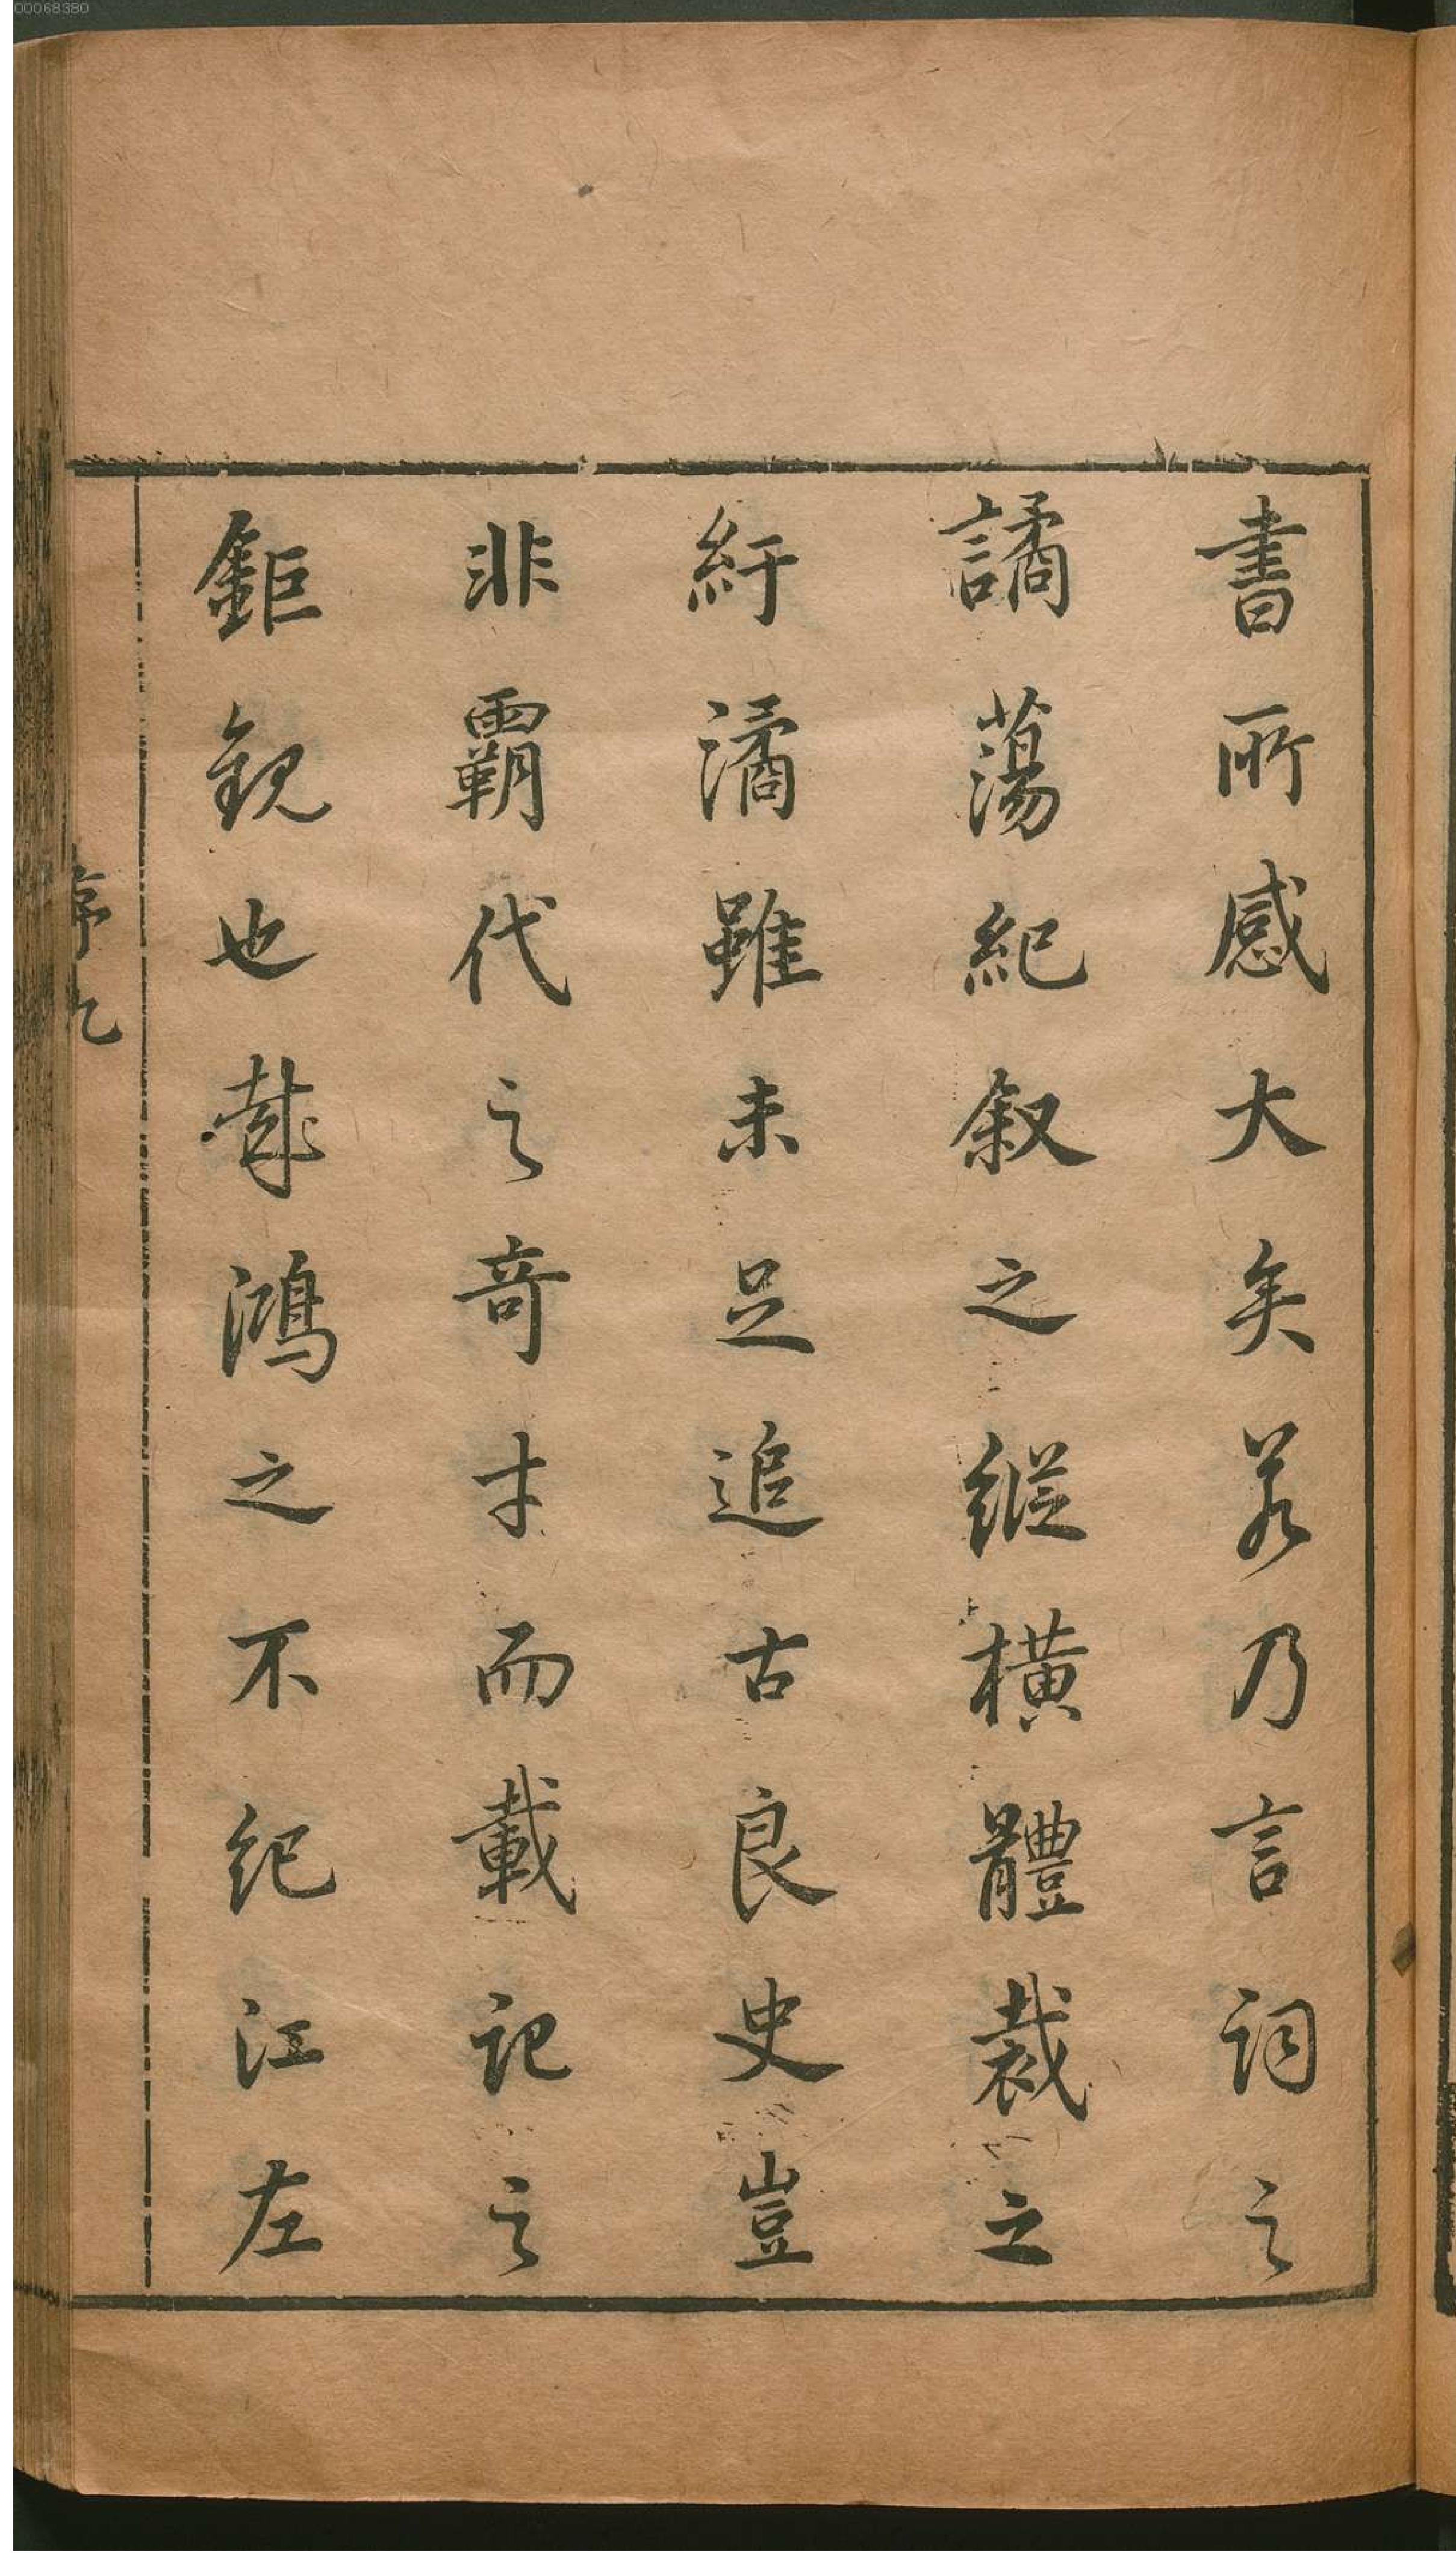 書所感大矣若乃言詞之
譎蕩紀叙之縱橫體裁之
紆潏雖未足追古良史豈
非覇代之奇才而載記之
鉅觀也哉鴻之不紀江左
序九
00068380